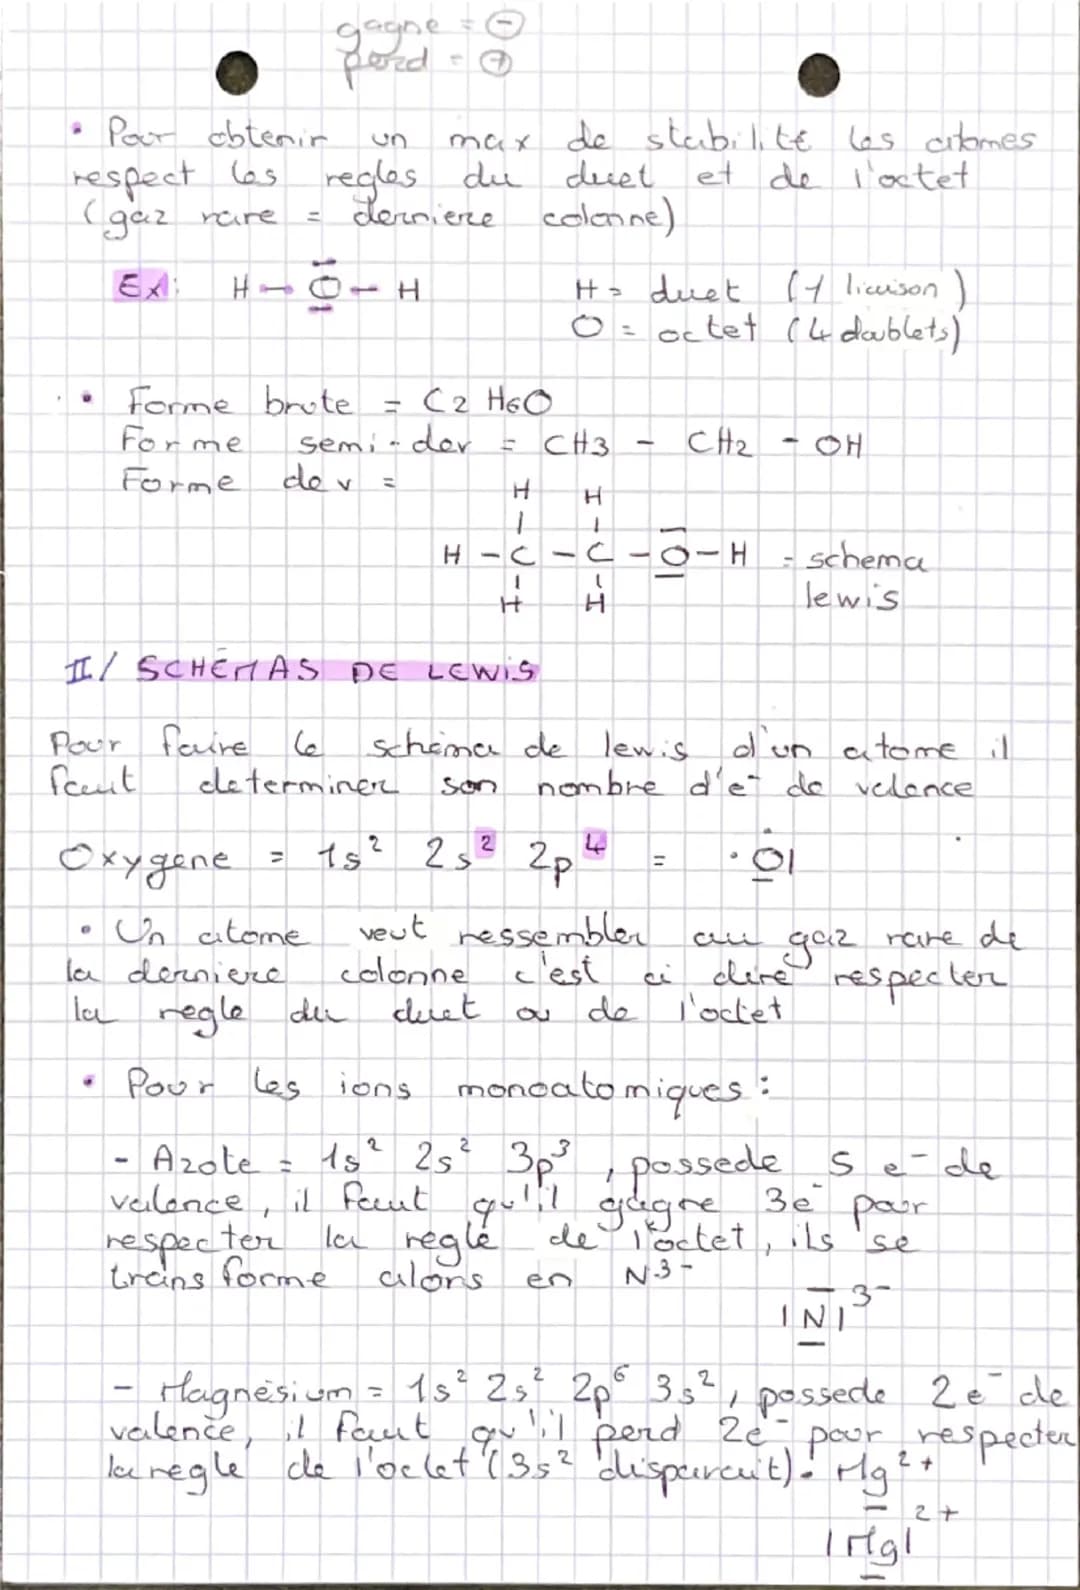 gagne = ⊖
perd = ⊕
• Pour obtenir un max de stabilité les atomes
respect les regles du duet et de l'octet
(gaz rare = derniere colonne)
Ex: H - O - H H = duet (1 liaison)
O = octet (4 doublets)
• Forme brute = C2 H6O
Forme semi-dev = CH3 - CH2 - OH
Forme dev =
H H
| |
H - C - C - O - H = schema
| |
H H lewis
II/ SCHÉMAS DE LEWIS
Pour faire le schéma de lewis d'un atome il
faut determiner son nombre d'e⁻ de valence
Oxygene = 1s² 2s² 2p⁴ = · O|
• Un atome veut ressembler au gaz rare de
la derniere colonne c'est a dire respecter
la regle du duet ou de l'octet
• Pour les ions monoatomiques :
- Azote = 1s² 2s² 3p³, possede 5 e⁻ de
valence, il faut qu'il gagne 3e⁻ pour
respecter la regle de l'octet, ils se
transforme alors en N3-
|N|³⁻
- Magnésium = 1s² 2s² 2p⁶ 3s², possede 2e⁻ de
valence, il faut qu'il perd 2e⁻ pour respecter
la regle de l'octet (3s² disparait). Mg²⁺
|Mg|²⁺